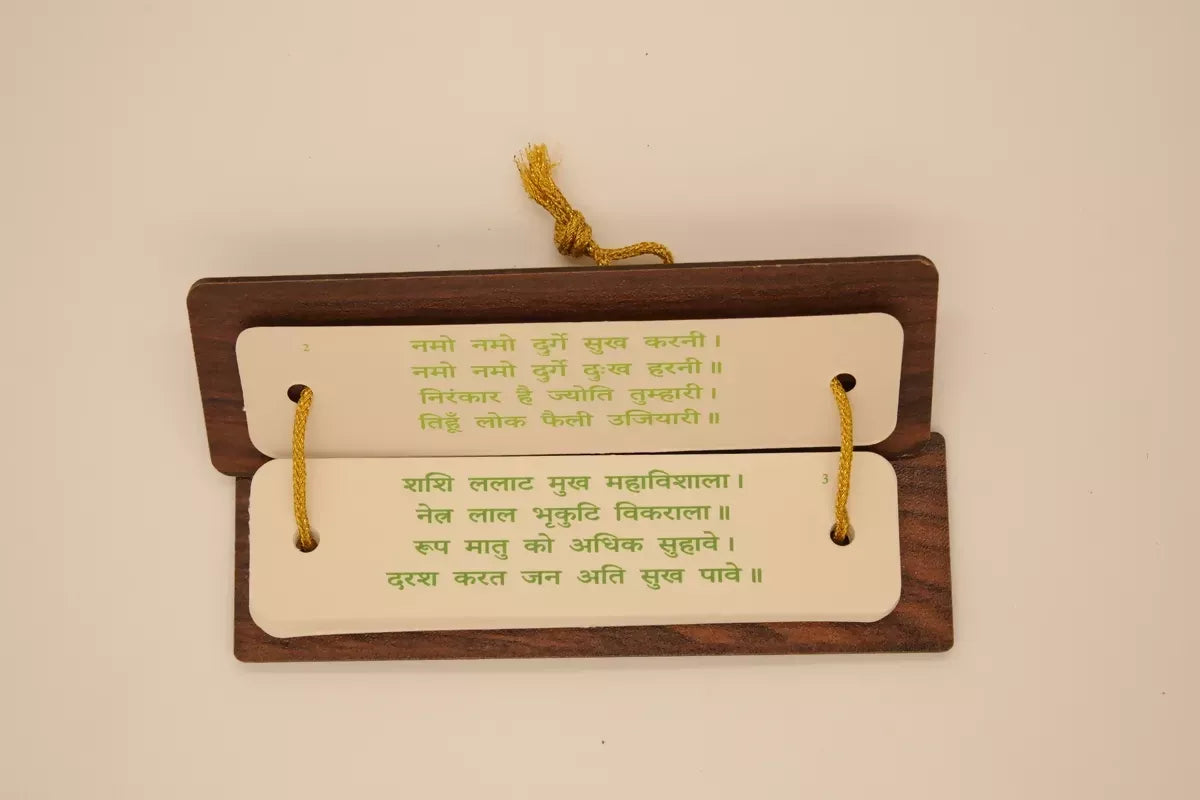 2
नमो नमो दुर्गे सुख करनी।
नमो नमो दुर्गे दुःख हरनी॥
निरंकार है ज्योति तुम्हारी।
तिहूँ लोक फैली उजियारी॥
3
शशि ललाट मुख महाविशाला।
नेत्र लाल भृकुटि विकराला॥
रूप मातु को अधिक सुहावे।
दरश करत जन अति सुख पावे॥